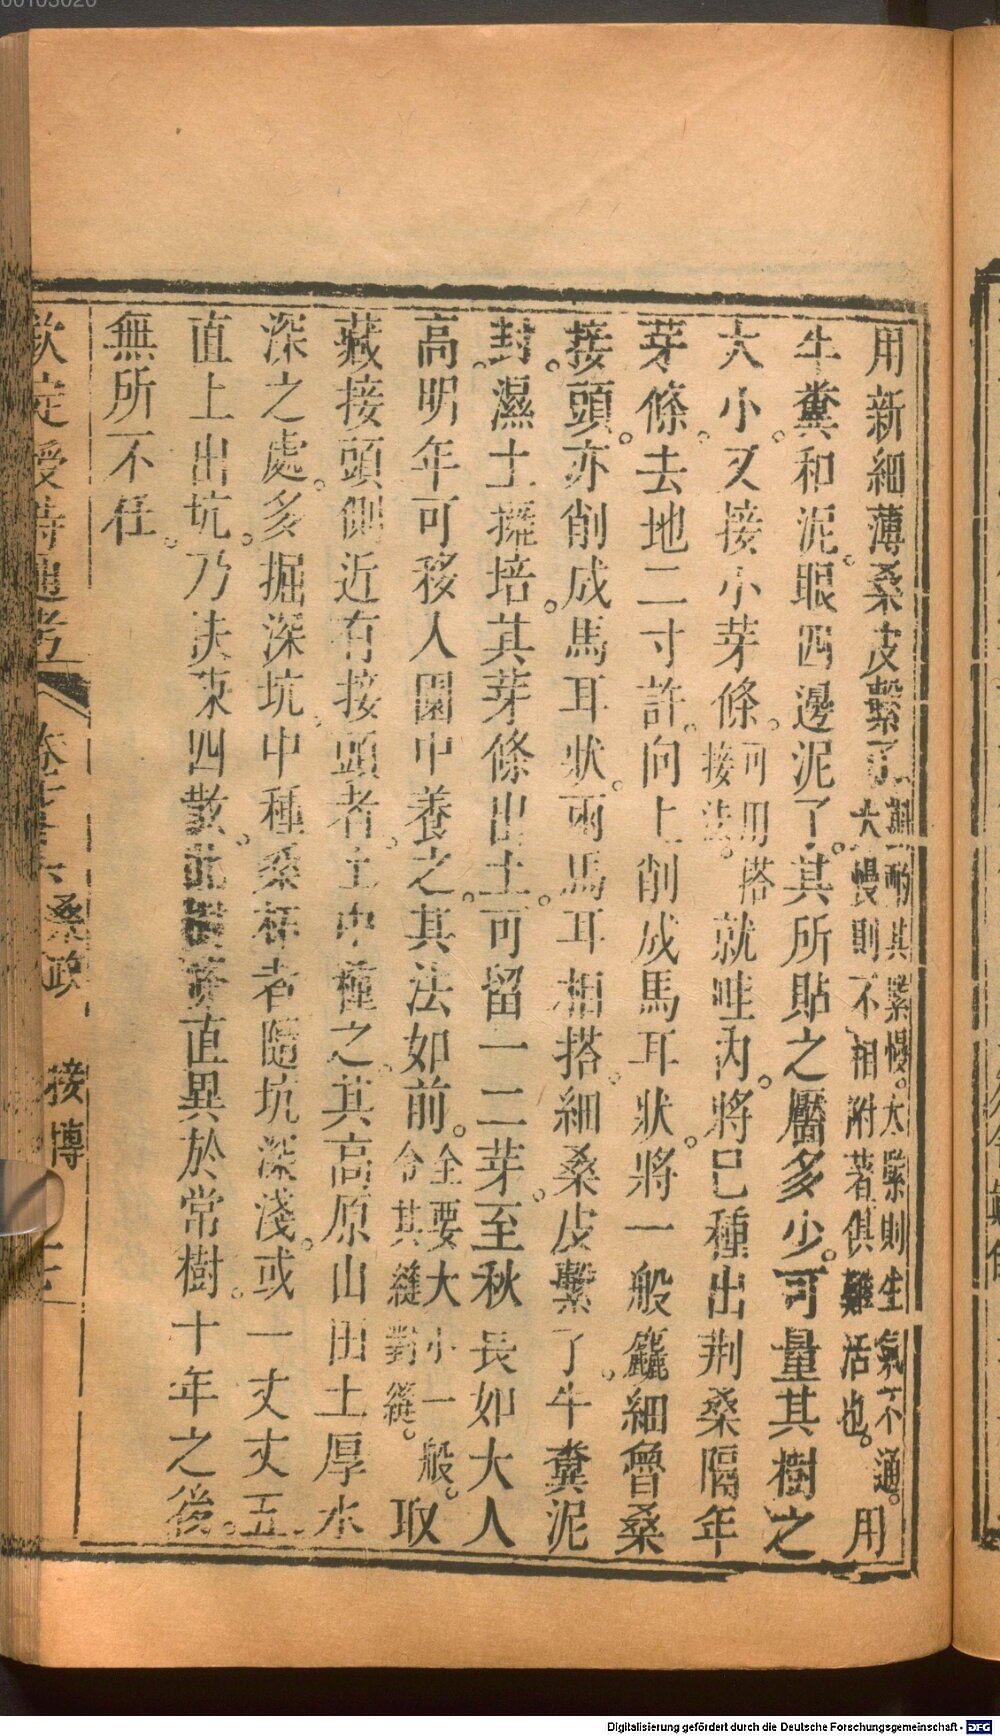 用新細薄桑皮繫了斟酌其緊慢。太緊則生氣不通。太慢則不相附著。俱難活也。用
牛糞和泥。眼四邊泥了。其所貼之靨多少。可量其樹之
大小。又接小芽條。可用搭接法。就哇內。將已種出荆桑隔年
芽條。去地二寸許。向上削成馬耳狀。將一般麤細魯桑
接頭。亦削成馬耳狀。兩馬耳相搭。細桑皮繫了。牛糞泥
封。濕土擁培。其芽條出土。可留一二芽。至秋長如大人
高。明年可移入園中養之。其法如前。全要大小一般。令其縫對縫。取
藏接頭。側近有接頭者。土中種之。其高原山田土厚水
深之處。多掘深坑。中種桑柘者。隨坑深淺。或一丈丈五
直上出坑。乃夫束四散。此樹條直異於常樹。十年之後。
無所不任。
欽定授時通考 桑政 接博